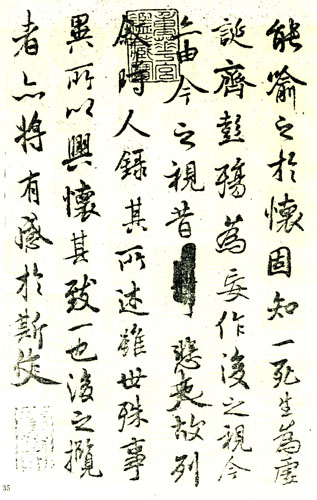 能喻之於懷固知一死生為虛
誕齊彭殤為妄作後之視今
亦由今之視昔悲夫故列
敘時人錄其所述雖世殊事
異所以興懷其致一也後之攬
者亦將有感於斯文
35